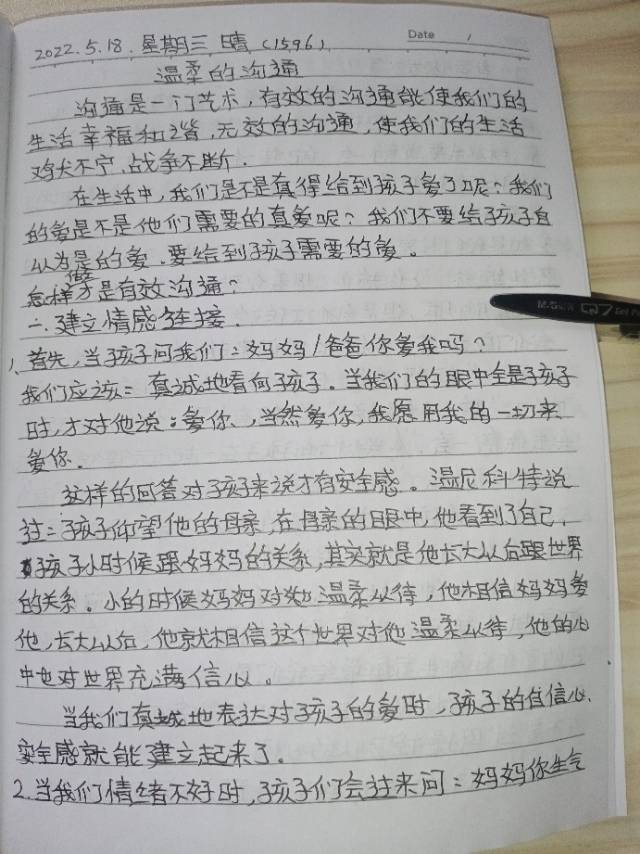 Date /
2022.5.18. 星期三 晴（1596）
温柔的沟通
沟通是一门艺术，有效的沟通能使我们的
生活幸福和谐，无效的沟通，使我们的生活
鸡犬不宁、战争不断．
在生活中，我们是不是真得给到孩子爱了呢？我们
的爱是不是他们需要的真爱呢？我们不要给孩子自
以为是的爱．要给到孩子需要的爱。
怎样做才是有效沟通？
一．建立情感链接．
1、首先，当孩子问我们：妈妈/爸爸你爱我吗？
我们应该：真诚地看向孩子．当我们的眼中全是孩子
时，才对他说：爱你、当然爱你，我愿用我的一切来
爱你．
这样的回答对孩子来说才有安全感。温尼科特说
过：孩子仰望他的母亲，在母亲的眼中，他看到了自己．
孩子小时候跟妈妈的关系，其实就是他长大以后跟世界
的关系。小的时候妈妈对他温柔以待，他相信妈妈爱
他，长大以后，他就相信这个世界对他温柔以待，他的心
中也对世界充满信心。
当我们真诚地表达对孩子的爱时，孩子的自信心、
安全感就能建立起来了．
2．当我们情绪不好时，孩子们会过来问：妈妈你生气